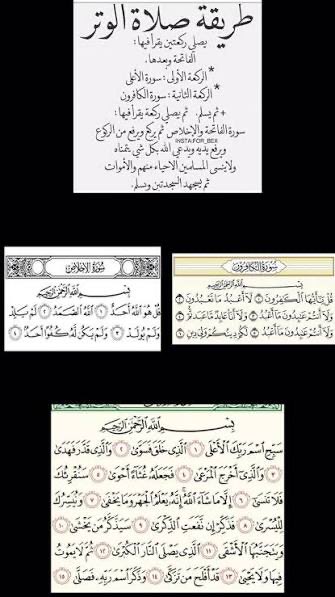 طريقة صلاة الوتر
يصلي ركعتين يقرأ فيها:
الفاتحة وبعدها.
*الركعة الأولى: سورة الأعلى
*الركعة الثانية: سورة الكافرون
+ ثم يسلم. ثم يصلي ركعة يقرأ فيها:
سورة الفاتحة والإخلاص ثم يركع ويرفع من الركوع
INSTA:FOR_BEX
ويرفع يديه ويدعي الله بكل شي يتمناه
ولاينسى المسلمين الأحياء منهم والأموات
ثم يسجد السجدتين ويسلم.
سُورَةُ الإِخْلَاصِ
بِسْمِ اللَّهِ الرَّحْمَٰنِ الرَّحِيمِ
قُلْ هُوَ اللَّهُ أَحَدٌ ١ اللَّهُ الصَّمَدُ ٢ لَمْ يَلِدْ
وَلَمْ يُولَدْ ٣ وَلَمْ يَكُن لَّهُ كُفُوًا أَحَدٌ ٤
سُورَةُ الكَافِرُونَ
بِسْمِ اللَّهِ الرَّحْمَٰنِ الرَّحِيمِ
قُلْ يَا أَيُّهَا الْكَافِرُونَ ١ لَا أَعْبُدُ مَا تَعْبُدُونَ ٢
وَلَا أَنتُمْ عَابِدُونَ مَا أَعْبُدُ ٣ وَلَا أَنَا عَابِدٌ مَّا عَبَدتُّمْ ٤
وَلَا أَنتُمْ عَابِدُونَ مَا أَعْبُدُ ٥ لَكُمْ دِينُكُمْ وَلِيَ دِينِ ٦
بِسْمِ اللَّهِ الرَّحْمَٰنِ الرَّحِيمِ
سَبِّحِ اسْمَ رَبِّكَ الْأَعْلَى ١ الَّذِي خَلَقَ فَسَوَّىٰ ٢ وَالَّذِي قَدَّرَ فَهَدَىٰ
٣ وَالَّذِي أَخْرَجَ الْمَرْعَىٰ ٤ فَجَعَلَهُ غُثَاءً أَحْوَىٰ ٥ سَنُقْرِئُكَ
فَلَا تَنسَىٰ ٦ إِلَّا مَا شَاءَ اللَّهُ إِنَّهُ يَعْلَمُ الْجَهْرَ وَمَا يَخْفَىٰ ٧ وَنُيَسِّرُكَ
لِلْيُسْرَىٰ ٨ فَذَكِّرْ إِن نَّفَعَتِ الذِّكْرَىٰ ٩ سَيَذَّكَّرُ مَن يَخْشَىٰ ١٠
وَيَتَجَنَّبُهَا الْأَشْقَى ١١ الَّذِي يَصْلَى النَّارَ الْكُبْرَىٰ ١٢ ثُمَّ لَا يَمُوتُ
فِيهَا وَلَا يَحْيَىٰ ١٣ قَدْ أَفْلَحَ مَن تَزَكَّىٰ ١٤ وَذَكَرَ اسْمَ رَبِّهِ فَصَلَّىٰ ١٥